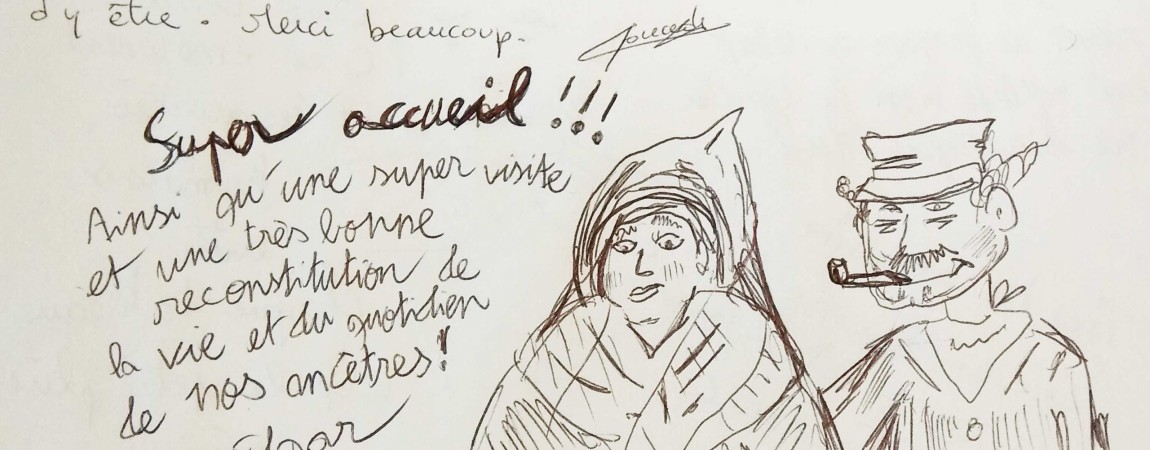 d'y être. Merci beaucoup.
Super accueil !!!
Ainsi qu'une super visite
et une très bonne
reconstitution de
la vie et du quotidien
de nos ancêtres!